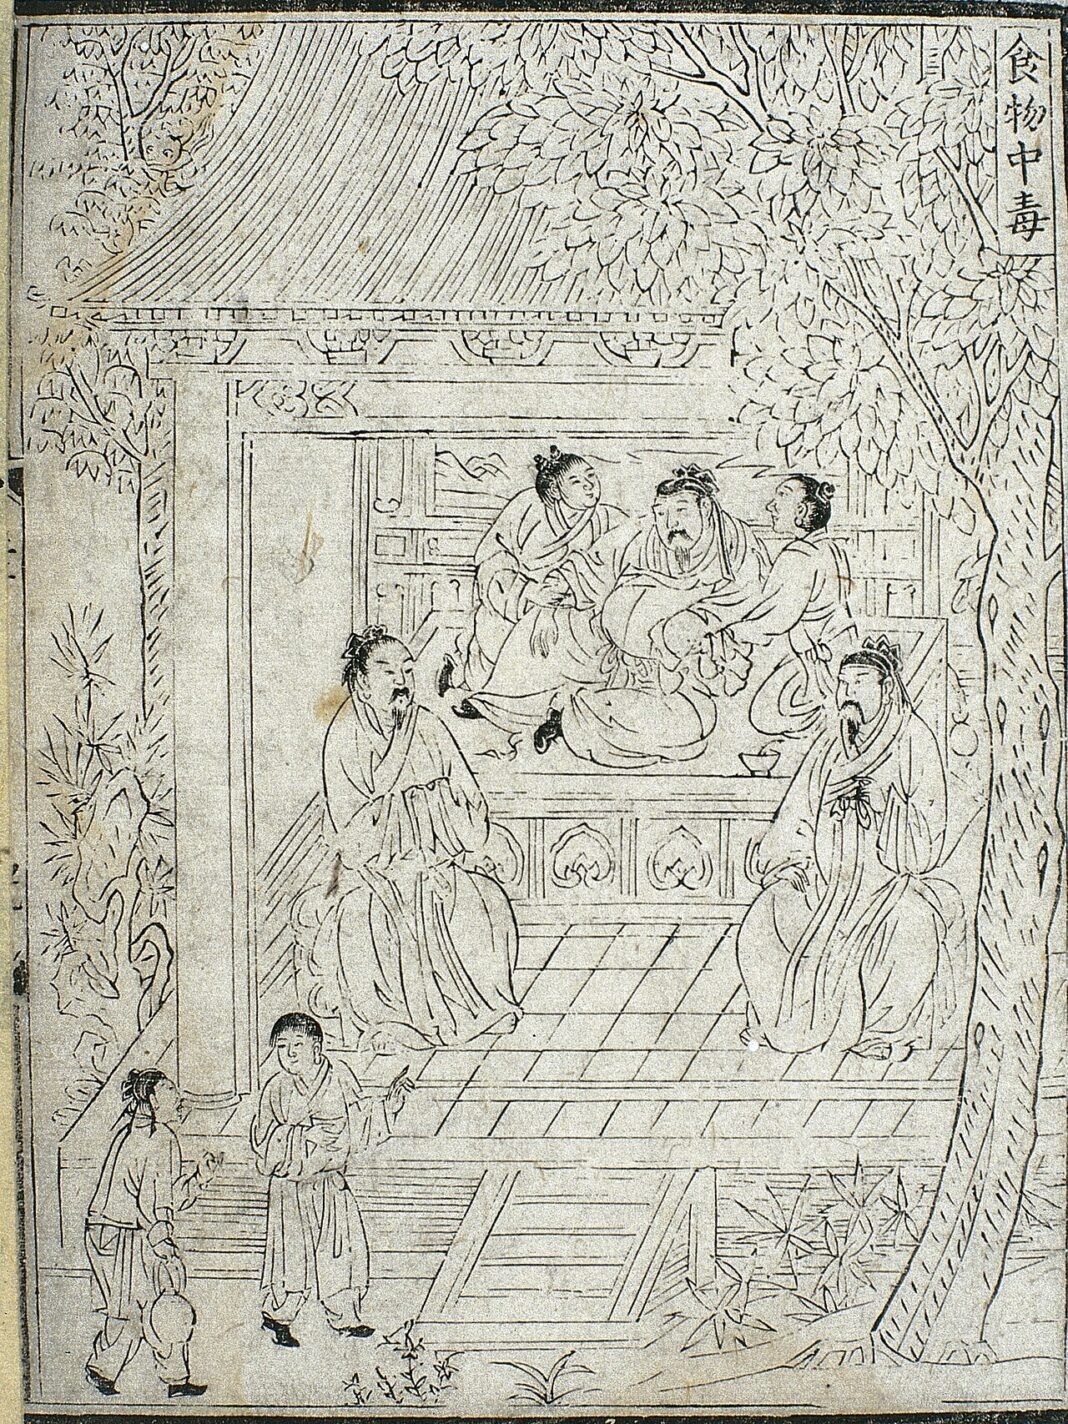 食物中毒